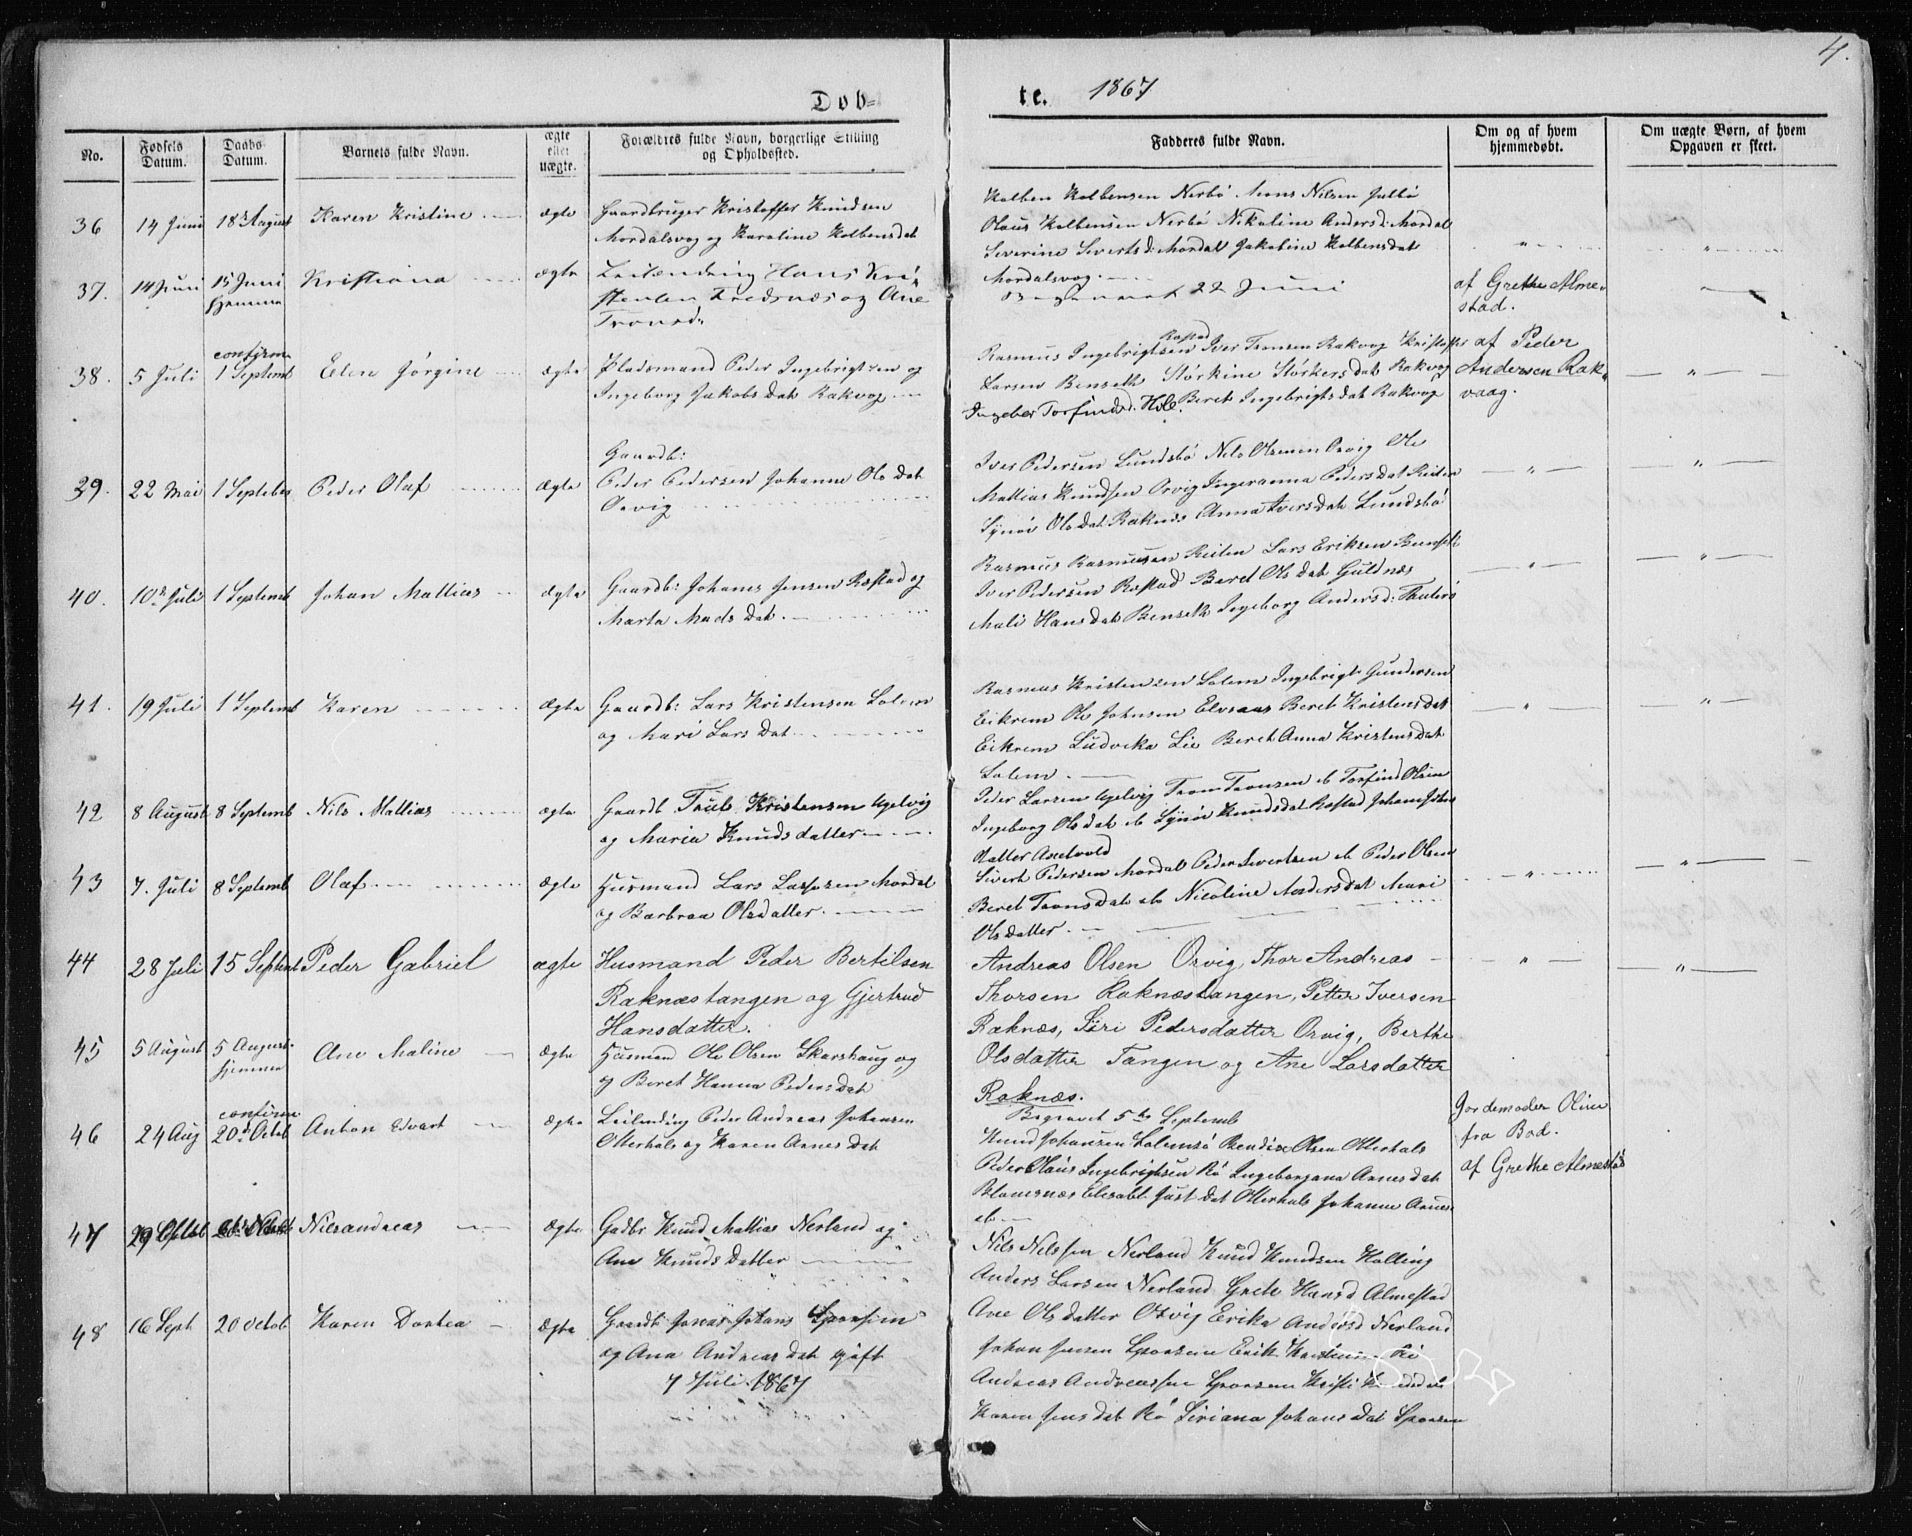 4.
Døb=
te. 1867
No.
Fødsels Datum.
Daabs Datum.
Barnets fulde Navn.
ægte eller uægte.
Forældres fulde Navn, borgerlige Stilling og Opholdssted.
Fadderes fulde Navn.
Om og af hvem hjemmedøbt.
Om uægte Børn, af hvem Opgaven er skeet.
36 14 Juni 18de August Karen Kristine ægte
Gaardbruger Kristoffer Knudsen
Mordalsvog og Karoline Kolbensdat
Kolben Kolbensen Nerbø Mons Nilsen Julbø
Olaus Kolbensen Nerbø Nikoline Andersd: Mordal
Severine Sivertsd: Mordal Jakobine Kolbensdat
Mordalsvog.
37. 14 Juni 15 Juni Hjemme Kristiana ægte
Leilending Hans Kri-
stensen og Ane
Tronsd:
Begravet 22 Juni
af Grethe Alme-
stad.
38. 5 Juli confirm 1 Septemb Elen Jørgine ægte
Pladsmand Peder Ingebrigtsen og
Ingeborg Jakobsdat Rakvog
Rasmus Ingebrigtsen Røstad Iver Tronsen Rakvog Kristoffer
Larsen Benseth Størkine Størkersdat Rakvog
Ingebor Torfindsd. Hole. Beret Ingebrigtsdat Rakvog
af Peder
Andersen Rak-
vaag.
39. 22 Mai 1 September Peder Olaf ægte
Gaardb:
Peder Pedersen Johanna Olsdat
Orvig
Iver Pedersen Lundsbø Nils Olsen Orvig Ole
Mattias Knudsen Orvig Ingeranna Pedersdat Reiten
Synøv Olsdat Raknes Anna Iversdat Lundsbø
40. 10de Juli 1 Septemb Johan Mattias ægte
Gaardb: Johanes Jensen Røstad og
Marta Madsdat.
Rasmus Rasmussen Reiten Lars Eriksen
Iver Pedersen Røstad Beret Olsdat Guldnæs
Mali Hansdat Benseth Ingeborg Andersd:
41. 19 Juli 1 Septemb Karen ægte
Gaardb: Lars Kristensen Solem
og Mari Larsdat
Rasmus Kristensen Solem Ingebrigt Gundersen
Eikrem Ole Johnsen Elvsaas Beret Kristensdat
Eikrem Ludvika Lie Beret Anna Kristensdat
Solem.
42 8 August 8 Septemb Nils Mattias ægte
Gaardb Truls Kristensen Ugelvig
og Maria Knudsdatter
Peder Larsen Ugelvig Tron Tronsen ib Torfind Olsen
Ingeborg Olsdat ib Synøv Knudsdat Røstad Johan
datter
43 7. Juli 8 Septemb Olaf ægte
Husmand Lars Larssen Mordal
og Barbraa Olsdatter.
Sivert Pedersen Mordal Peder Sivertsen ib Peder Olsen
Beret Tronsdat ib Nicoline Andersdat Mari
Olsdatter.
44 28 Juli 15 Septent Peder Gabriel ægte
Husmand Peder Bertilsen
Raknæstangen og Gjertrud
Hansdatter.
Andreas Olsen Orvig, Thor Andreas
Thorsen Raknæstangen, Petter Iversen
Raknæs, Siri Pedersdatter Orvig, Berthe
Olsdatter Tangen og Ane Larsdatter
Raknæs.
45 5 August 5 August hjemme Ane Maline ægte
Husmand Ole Olsen Skarshaug og
og Beret Hanna Pedersdat
Begravet 5te Septemb
Gordemoder Oline
fra Bod.
46 24 Aug confirm 20de Octob Anton Edvart ægte
Leilending Peder Andreas Johansen
Otterhals og Karen Arnesdat
Knud Johansen Solemsø Bendix Olsen Otterhals
Peder Olaus Ingebrigtsen Rø Ingeborgana Arnesdat
Blomsnæs Elisabt Justdat Otterhals Johanna Arnes
ib
af Grethe Almestad
47 29 Nilsandreas ægte
Gadbr Knud Mattias Nerland og
Ane Knuds Datter
Nils Nilssen Nerland Knud Knudsen Kolling
Anders Larsen Nerland Grete Hansd Almestad
Ane Olsdatter Orvig Erika Andersd Nerland
48 16 Sept 20 Octob Karen Dortea ægte
Gaardb Jonas Johans
og Ana Andreasdat gift
7 Juli 1867
Johan Jensen Erik
Andreas Andreassen
Karen Jensdat Rø Siriana Johansdat